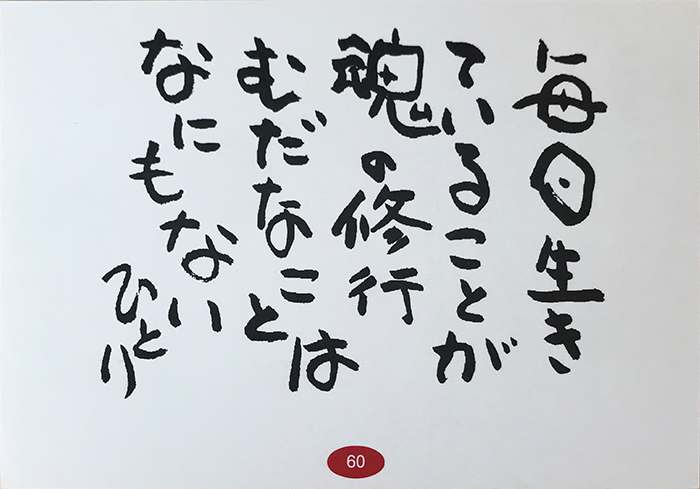 毎日生き
ていることが
魂の修行
むだなことは
なにもない
ひとり
60